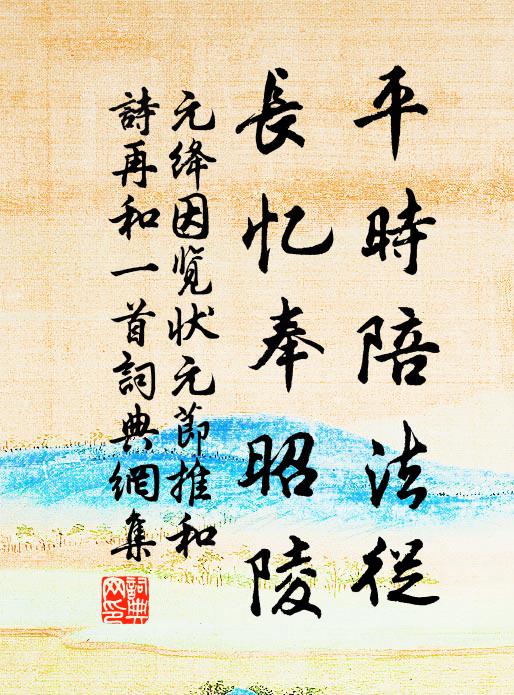 平時陪法從
長忆奉昭陵
元绛因览状元節推和
詩再和一首詞典網集
詞典
网印